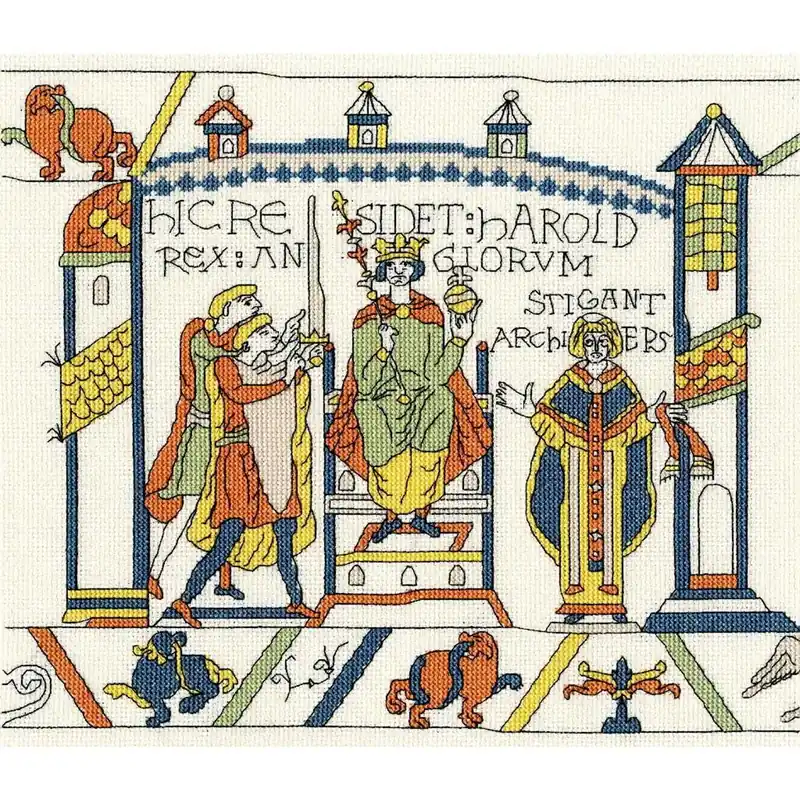 hIC RE SIDET : hAROLD
REX : AN GLORVM
STIGANT
ARCHI EPS